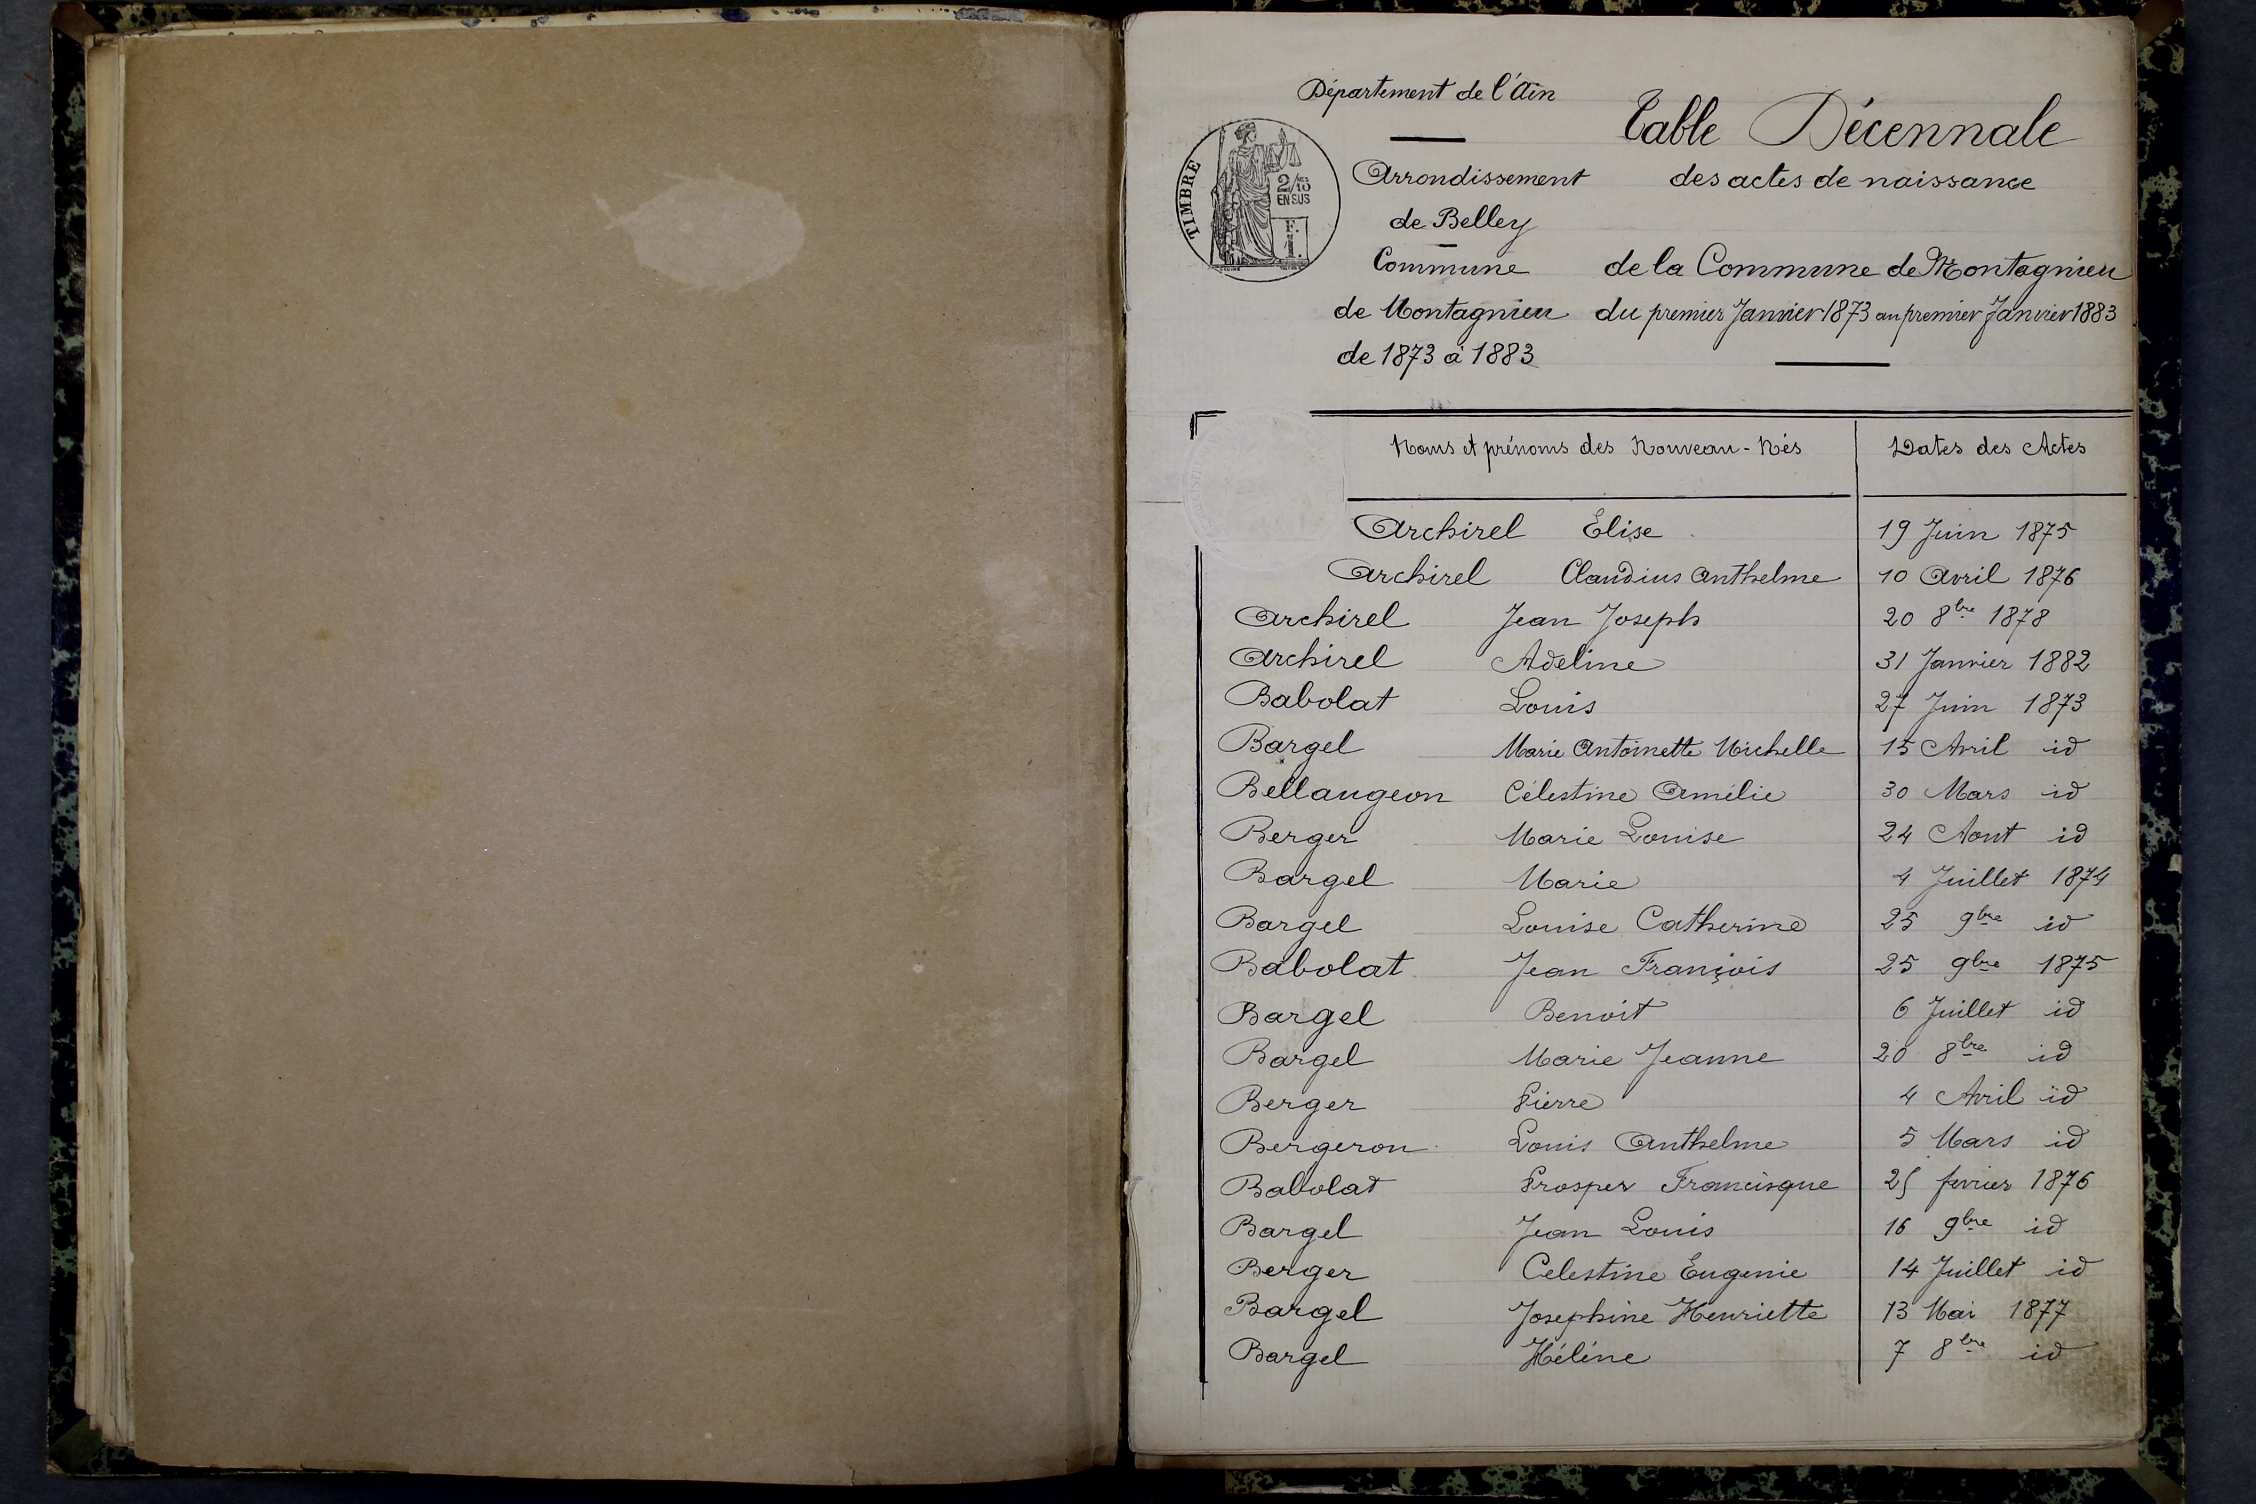 Département de l'Ain
Table Décennale
TIMBRE
2/10 MES
EN SUS
F.
1.
Arrondissement
des actes de naissance
de Belley
Commune
de la Commune de Montagnieu
de Montagnieu
du premier Janvier 1873 au premier Janvier 1883
de 1873 à 1883
Noms et prénoms des Nouveau-Nés Dates des Actes
Archirel Élise 19 Juin 1875
Archirel Claudius Anthelme 10 Avril 1876
Archirel Jean Joseph 20 8bre 1878
Archirel Adeline 31 Janvier 1882
Babolat Louis 27 Juin 1873
Bargel Marie Antoinette Michelle 15 Avril id
Bellaugeon Célestine Amélie 30 Mars id
Berger Marie Louise 24 Aout id
Bargel Marie 4 Juillet 1874
Bargel Louise Catherine 25 9bre id
Babolat Jean François 25 9bre 1875
Bargel Benoit 6 Juillet id
Bargel Marie Jeanne 20 8bre id
Berger Pierre 4 Avril id
Bergeron Louis Anthelme 5 Mars id
Babolat Prosper Francisque 25 fevrier 1876
Bargel Jean Louis 16 9bre id
Berger Celestine Eugenie 14 Juillet id
Bargel Josephine Henriette 13 Mai 1877
Bargel Héléne 7 8bre id